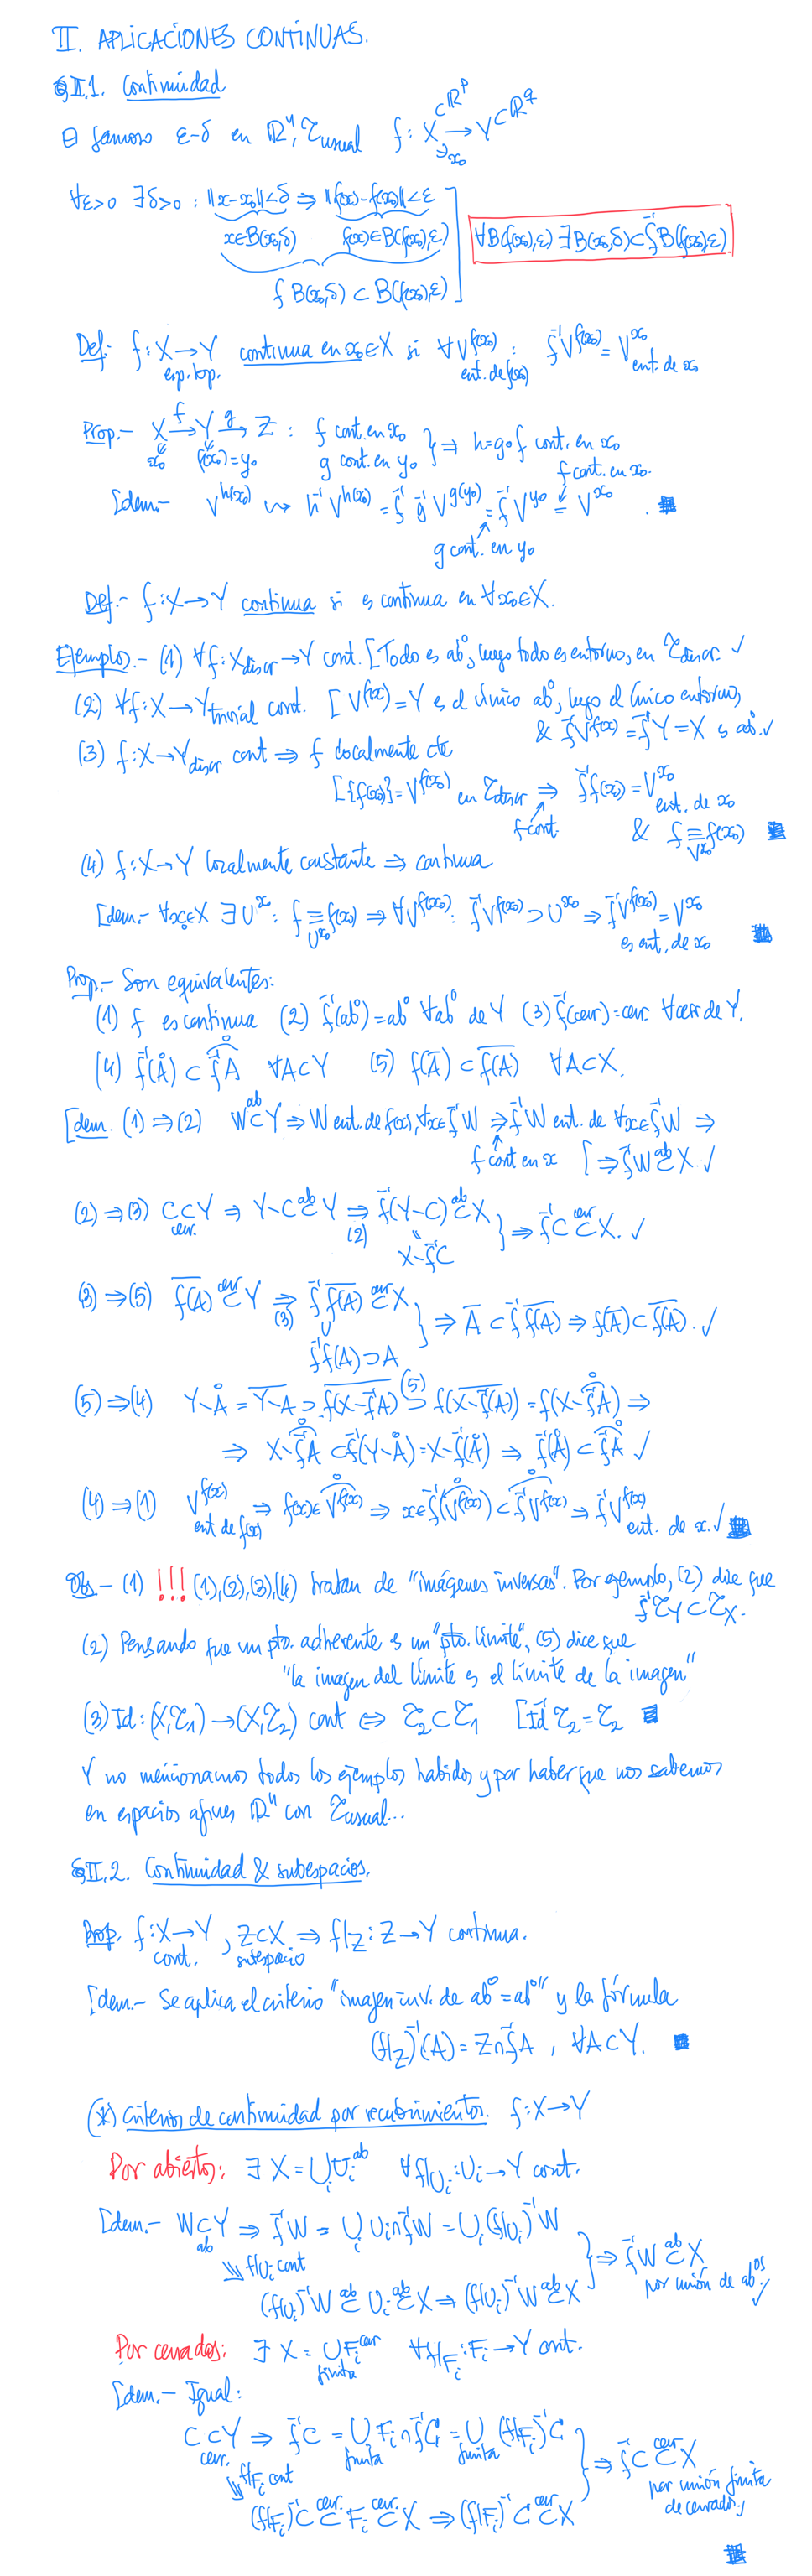 II. APLICACIONES CONTINUAS.
§II.1. Continuidad
El famoso ε-δ en ℝⁿ, 𝒯usual f: X ⊂ ℝᵖ → Y ⊂ ℝ^q
∋ x₀
∀ε>0 ∃δ>0 : ||x-x₀||<δ ⇒ ||f(x)-f(x₀)||<ε
x∈B(x₀,δ) f(x)∈B(f(x₀),ε)
∀B(f(x₀),ε) ∃B(x₀,δ)⊂f⁻¹B(f(x₀),ε)
f B(x₀,δ) ⊂ B(f(x₀),ε)
Def.- f: X → Y continua en x₀∈X si ∀V^{f(x₀)} : f⁻¹V^{f(x₀)} = V^{x₀}
esp. top. ent. de f(x₀) ent. de x₀
Prop.- X →f Y →g Z : f cont. en x₀ } ⇒ h=g∘f cont. en x₀
x₀ f(x₀)=y₀ g cont. en y₀
f cont. en x₀.
[dem.- V^{h(x₀)} ⇝ h⁻¹V^{h(x₀)} = f⁻¹ g⁻¹ V^{g(y₀)} = f⁻¹ V^{y₀} = V^{x₀}.
g cont. en y₀
Def.- f: X→Y continua si es continua en ∀x₀∈X.
Ejemplos.- (1) ∀f: X_discr → Y cont. [Todo es abº, luego todo es entorno, en 𝒯discr. ✓
(2) ∀f: X→Y_trivial cont. [V^{f(x)} = Y es el único abº, luego el único entorno,
& f⁻¹V^{f(x)} = f⁻¹Y = X es abº. ✓
(3) f: X→Y_discr cont ⇒ f localmente cte
[{f(x₀)} = V^{f(x₀)} en 𝒯discr ⇒ f⁻¹f(x₀) = V^{x₀}
f cont. ent. de x₀
& f ≡ f(x₀)
V^{x₀}
(4) f: X→Y localmente constante ⇒ continua
[dem.- ∀x₀∈X ∃U^{x₀}: f ≡ f(x₀) ⇒ ∀V^{f(x₀)}: f⁻¹V^{f(x₀)} ⊃ U^{x₀} ⇒ f⁻¹V^{f(x₀)} = V^{x₀}
U^{x₀} es ent. de x₀
Prop.- Son equivalentes:
(1) f es continua (2) f⁻¹(abº) = abº ∀abº de Y (3) f⁻¹(cerr) = cerr. ∀cerr de Y.
(4) f⁻¹(Å) ⊂ f⁻¹A° ∀A⊂Y (5) f(A̅) ⊂ \overline{f(A)} ∀A⊂X.
[dem. (1)⇒(2) W ⊂ab Y ⇒ W ent. de f(x), ∀x∈f⁻¹W ⇒ f⁻¹W ent. de ∀x∈f⁻¹W ⇒
f cont en x [⇒ f⁻¹W ⊂ab X. ✓
(2)⇒(3) C⊂Y ⇒ Y∖C ⊂ab Y ⇒ f⁻¹(Y∖C) ⊂ab X } ⇒ f⁻¹C ⊂cerr X. ✓
cerr. (2) ||
X∖f⁻¹C
(3)⇒(5) \overline{f(A)} ⊂cerr Y ⇒ f⁻¹\overline{f(A)} ⊂cerr X } ⇒ A̅ ⊂ f⁻¹\overline{f(A)} ⇒ f(A̅) ⊂ \overline{f(A)}. ✓
(3) ∪
f⁻¹f(A) ⊃ A
(5)⇒(4) Y∖Å = \overline{Y∖A} ⊃ \overline{f(X∖f⁻¹A)} ⊃(5) f(\overline{X∖f⁻¹(A)}) = f(X∖f⁻¹A°) ⇒
⇒ X∖f⁻¹A° ⊂ f⁻¹(Y∖Å) = X∖f⁻¹(Å) ⇒ f⁻¹(Å) ⊂ f⁻¹A° ✓
(4)⇒(1) V^{f(x)} ⇒ f(x)∈V^{f(x)}° ⇒ x∈f⁻¹(V^{f(x)}°) ⊂ f⁻¹V^{f(x)}° ⇒ f⁻¹V^{f(x)}
ent de f(x) ent. de x. ✓
Obs.- (1) !!! (1),(2),(3),(4) tratan de "imágenes inversas". Por ejemplo, (2) dice que
f⁻¹𝒯_Y ⊂ 𝒯_X.
(2) Pensando que un pto. adherente es un "pto. límite", (5) dice que
"la imagen del límite es el límite de la imagen"
(3) Id: (X,𝒯₁) → (X,𝒯₂) cont ⇔ 𝒯₂⊂𝒯₁ [Id⁻¹𝒯₂ = 𝒯₂
Y no mencionamos todos los ejemplos habidos y por haber que nos sabemos
en espacios afines ℝⁿ con 𝒯usual...
§II.2. Continuidad & subespacios.
Prop. f: X→Y, Z⊂X ⇒ f|_Z : Z→Y continua.
cont. subespacio
[dem.- Se aplica el criterio "imagen inv. de abº = abº" y la fórmula
(f|_Z)⁻¹(A) = Z∩f⁻¹A , ∀A⊂Y.
(*) Criterios de continuidad por recubrimientos. f: X→Y
Por abiertos: ∃ X = ⋃_i U_i^ab ∀f|U_i : U_i → Y cont.
[dem.- W⊂Y ⇒ f⁻¹W = ⋃_i U_i∩f⁻¹W = ⋃_i (f|U_i)⁻¹W
ab f|U_i cont } ⇒ f⁻¹W ⊂ab X
por unión de abºˢ. ✓
(f|U_i)⁻¹W ⊂ab U_i ⊂ab X ⇒ (f|U_i)⁻¹W ⊂ab X
Por cerrados: ∃ X = ⋃F_i^cerr ∀f|F_i : F_i → Y cont.
finita
[dem.- Igual:
C⊂Y ⇒ f⁻¹C = ⋃ F_i∩f⁻¹C = ⋃ (f|F_i)⁻¹C
cerr. finita finita
f|F_i cont } ⇒ f⁻¹C ⊂cerr X
por unión finita
de cerrados. ✓
(f|F_i)⁻¹C ⊂cerr. F_i ⊂cerr. X ⇒ (f|F_i)⁻¹C ⊂cerr X